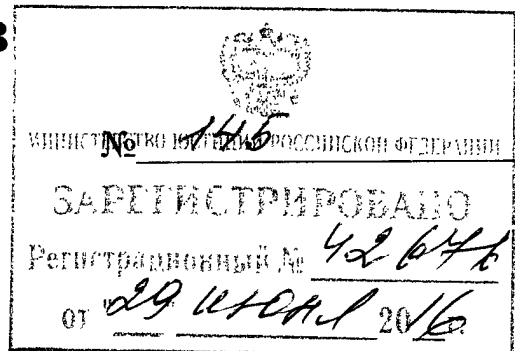 № 145
МИНИСТЕРСТВО ЮСТИЦИИ РОССИЙСКОЙ ФЕДЕРАЦИИ
ЗАРЕГИСТРИРОВАНО
Регистрационный №
от "29" июня 2016.